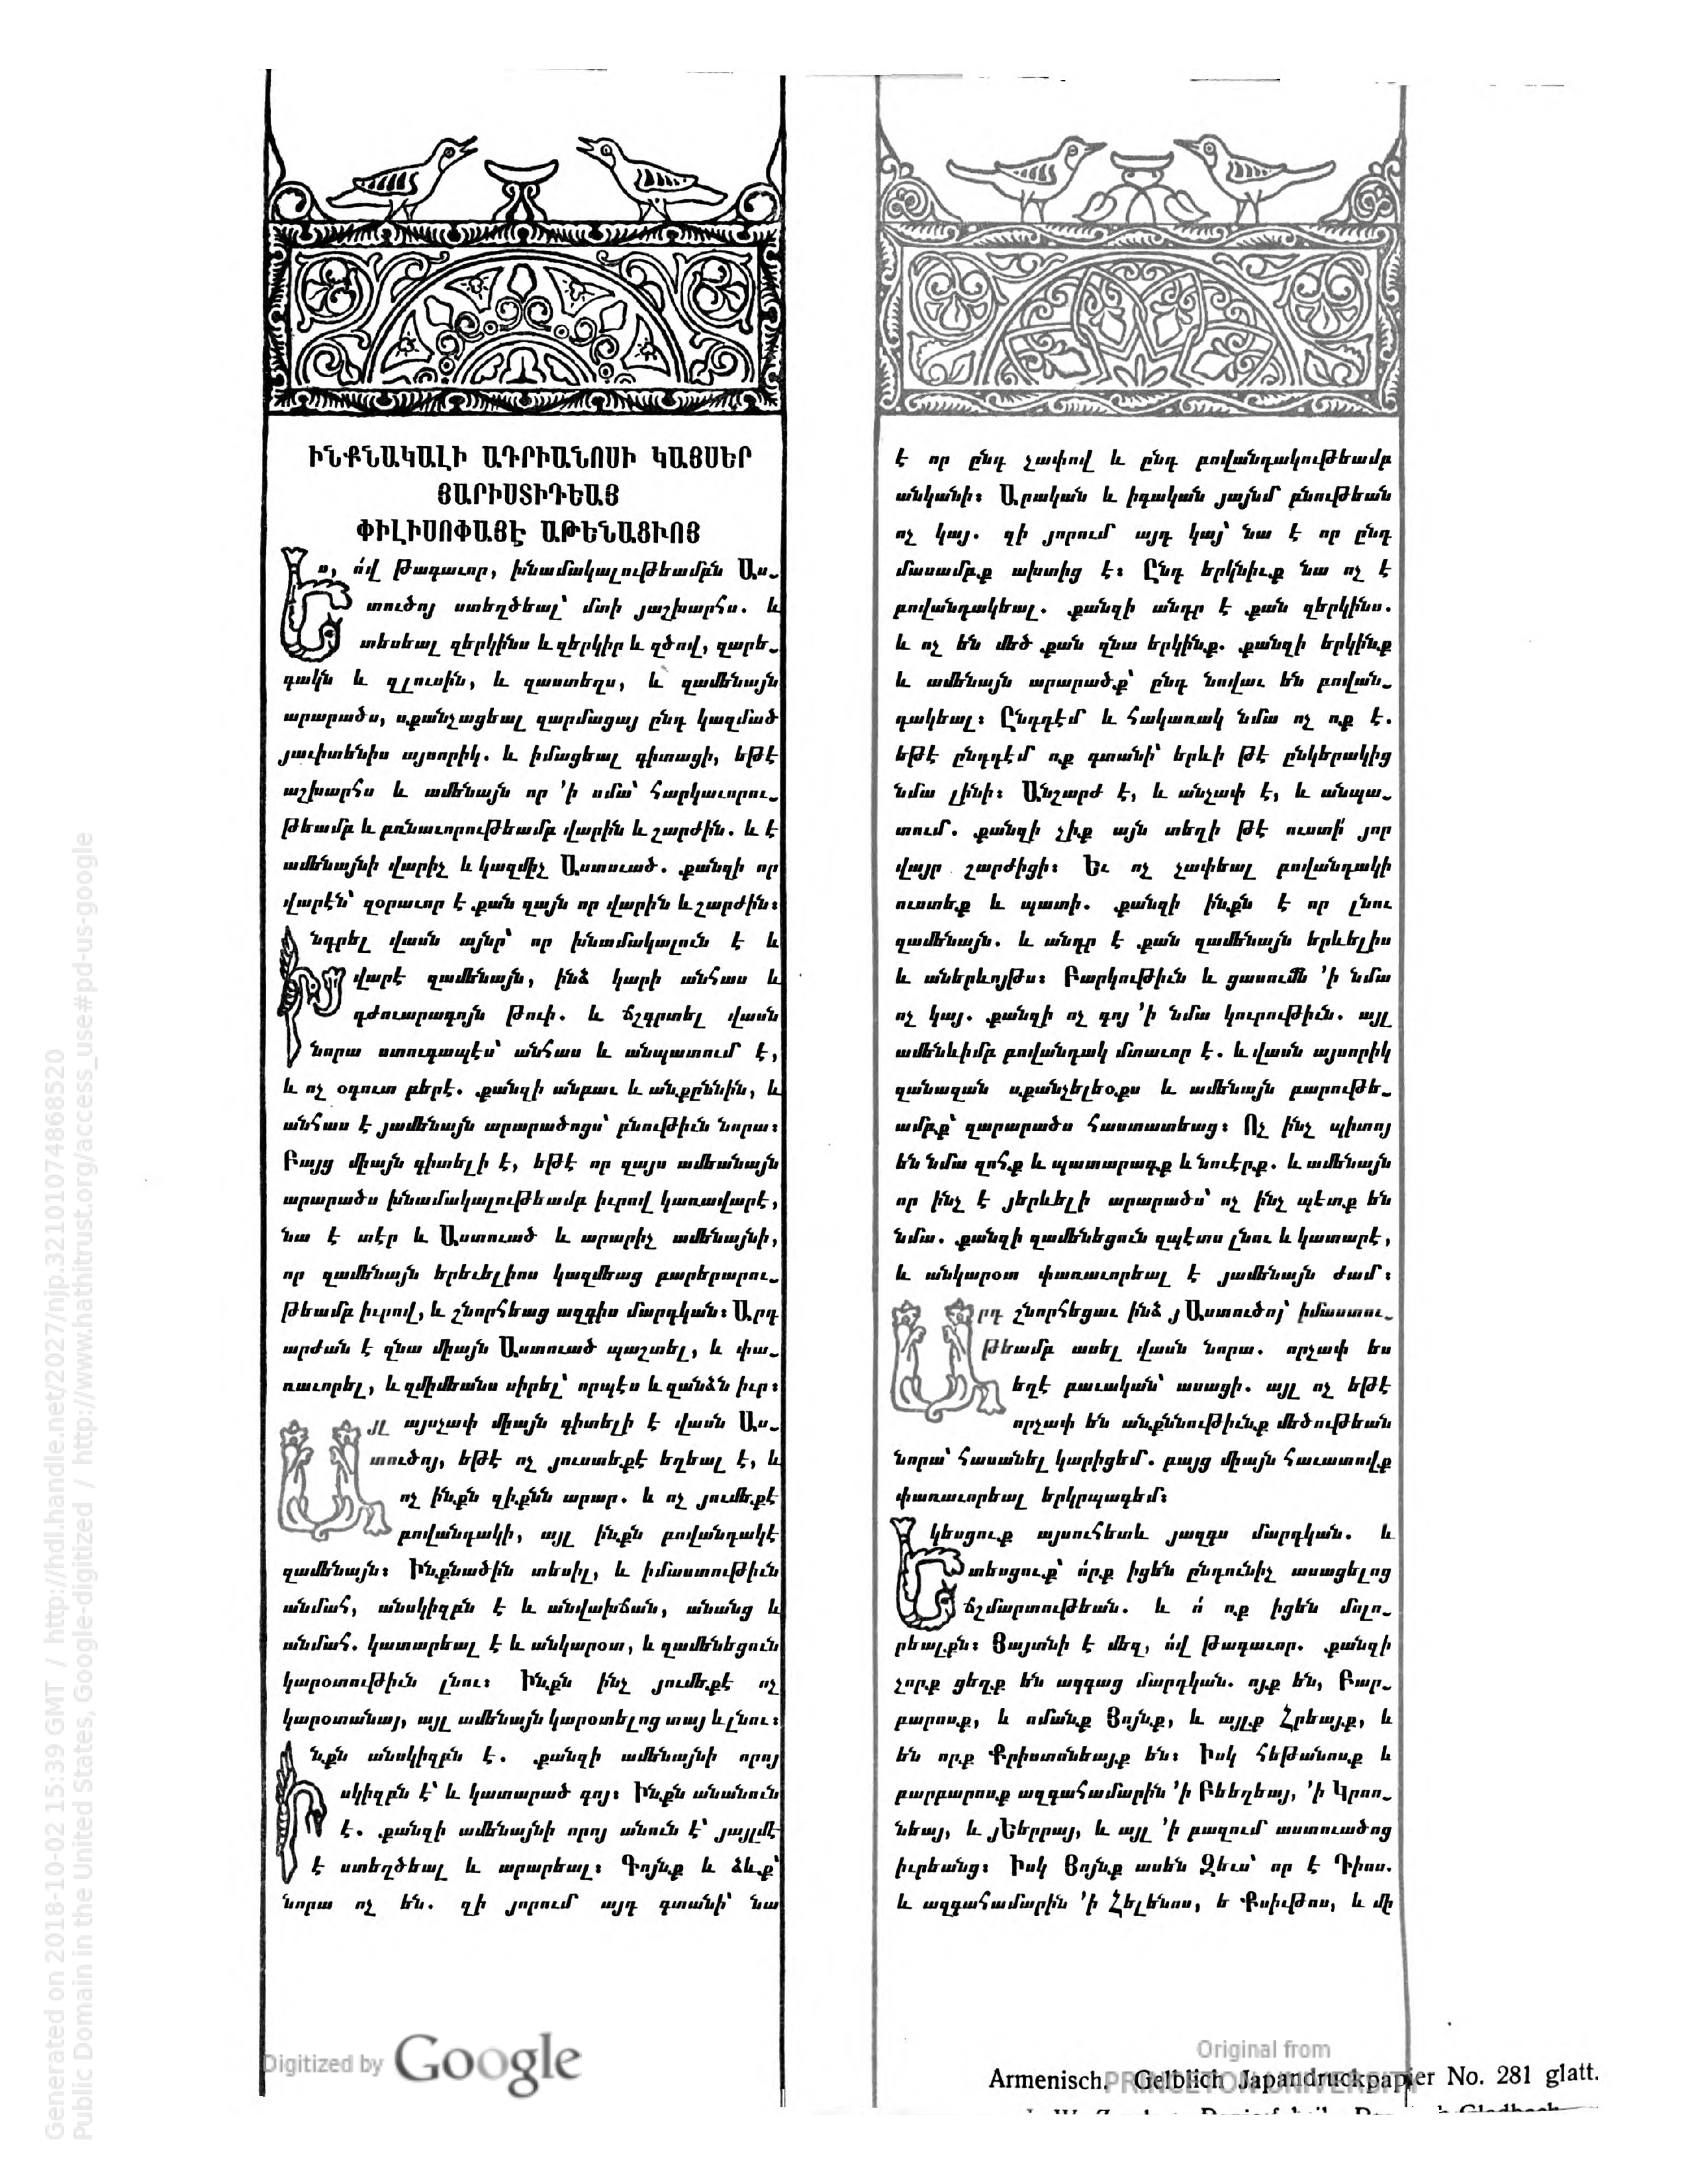 ԻՆՔՆԱԿԱԼԻ ԱԴՐԻԱՆՈՍԻ ԿԱՅՍԵՐ
ՅԱՐԻՍՏԻԴԵԱՅ
ՓԻԼԻՍՈՓԱՅԷ ԱԹԵՆԱՑՒՈՑ
Ես, ո՛վ Թագաւոր, խնամակալութեամբն Աս֊
տուծոյ ստեղծեալ՝ մտի յաշխարհս. և
տեսեալ զերկինս և զերկիր և զծով, զարե֊
գակն և զլուսին, և զաստեղս, և զամենայն
արարածս, սքանչացեալ զարմացայ ընդ կազմած
յաւիտենիս այսորիկ. և իմացեալ գիտացի, եթէ
աշխարհս և ամենայն որ ՚ի սմա՝ հարկաւորու֊
թեամբ և բռնաւորութեամբ վարին և շարժին. և է
ամենայնի վարիչ և կազմիչ Աստուած. քանզի որ
վարէն՝ զօրաւոր է քան զայն որ վարին և շարժին։
Խնդրել վասն այնր՝ որ խնամակալուն է և
վարէ զամենայն, ինձ կարի անհաս և
դժուարագոյն թուի. և ճշգրտել վասն
նորա ստուգապէս՝ անհաս և անպատում է,
և ոչ օգուտ բերէ. քանզի անբաւ և անքըննին, և
անհաս է յամենայն արարածոցս՝ բնութիւն նորա։
Բայց միայն գիտելի է, եթէ որ զայս ամեանայն
արարածս խնամակալութեամբ իւրով կառավարէ,
նա է տէր և Աստուած և արարիչ ամենայնի,
որ զամենայն երեւելիոս կազմեաց բարերարու֊
թեամբ իւրով, և շնորհեաց ազգիս մարդկան։ Արդ
արժան է զնա միայն Աստուած պաշտել, և փա֊
ռաւորել, և զմիմեանս սիրել՝ որպէս և զանձն իւր։
Այլ այսչափ միայն գիտելի է վասն Աս֊
տուծոյ, եթէ ոչ յուստեքէ եղեալ է, և
ոչ ինքն զիքնն արար. և ոչ յումեքէ
բովանդակի, այլ ինքն բովանդակէ
զամենայն։ Ինքնածին տեսիլ, և իմաստութիւն
անմահ, անսկիզբն է և անվախճան, անանց և
անմահ. կատարեալ է և անկարօտ, և զամենեցուն
կարօտութիւն լնու։ Ինքն ինչ յումեքէ ոչ
կարօտանայ, այլ ամենայն կարօտելոց տայ և լնու։
Ինքն անսկիզբն է. քանզի ամենայնի որոյ
սկիզբն է՝ և կատարած գոյ։ Ինքն անանուն
է. քանզի ամենայնի որոյ անուն է՝ յայլմէ
է ստեղծեալ և արարեալ։ Գոյնք և ձևք՝
նորա ոչ են. զի յորում այդ գտանի՝ նա
է որ ընդ չափով և ընդ բովանդակութեամբ
անկանի։ Արական և իգական յայնմ բնութեան
ոչ կայ. զի յորում այդ կայ՝ նա է որ ընդ
մասամբք ախտից է։ Ընդ երկնիւք նա ոչ է
բովանդակեալ. քանզի անդր է քան զերկինս.
և ոչ են մեծ քան զնա երկինք. քանզի երկինք
և ամենայն արարածք՝ ընդ նովաւ են բովան֊
դակեալ։ Ընդդէմ և հակառակ նմա ոչ ոք է.
եթէ ընդդէմ ոք գտանի՝ երևի թէ ընկերակից
նմա լինի։ Անշարժ է, և անչափ է, և անպա֊
տում. քանզի չիք այն տեղի թէ ուստի՛ յոր
վայր շարժիցի։ Եւ ոչ չափեալ բովանդակի
ուստեք և պատի. քանզի ինքն է որ լնու
զամենայն. և անդր է քան զամենայն երևելիս
և աներևոյթս։ Բարկութիւն և ցասումն ՚ի նմա
ոչ կայ. քանզի ոչ գոյ ՚ի նմա կուրութիւն. այլ
ամենևիմբ բովանդակ մտաւոր է. և վասն այսորիկ
զանազան սքանչելեօքս և ամենայն բարութե֊
ամբք՝ զարարածս հաստատեաց։ Ոչ ինչ պիտոյ
են նմա զոհք և պատարագք և նուէրք. և ամենայն
որ ինչ է յերևելի արարածս՝ ոչ ինչ պէտք են
նմա. քանզի զամենեցուն զպէտս լնու և կատարէ,
և անկարօտ փառաւորեալ է յամենայն ժամ։
Արդ շնորհեցաւ ինձ յԱստուծոյ՝ իմաստու֊
թեամբ ասել վասն նորա. որչափ ես
եղէ բաւական՝ ասացի. այլ ոչ եթէ
որչափ են անքննութիւնք մեծութեան
նորա՝ հասանել կարիցեմ. բայց միայն հաւատովք
փառաւորեալ երկրպագեմ։
Եկեսցուք այսուհետև յազգս մարդկան. և
տեսցուք՝ ո՛րք իցեն ընդունիչ ասացելոց
ճշմարտութեան. և ո՛ ոք իցեն մոլո֊
րեալքն։ Յայտնի է մեզ, ո՛վ Թագաւոր. քանզի
չորք ցեղք են ազգաց մարդկան. ոյք են, Բար֊
բարոսք, և ոմանք Յոյնք, և այլք Հրեայք, և
են որք Քրիստոնեայք են։ Իսկ հեթանոսք և
բարբարոսք ազգահամարին ՚ի Բեեղեայ, ՚ի Կրոո֊
նեայ, և յԵերրայ, և այլ ՚ի բազում աստուածոց
իւրեանց։ Իսկ Յոյնք ասեն Զեւս՝ որ է Դիոս.
և ազգահամարին ՚ի Հելենոս, ե Քսիւթոս, և մի
Digitized by Google
Original from
PRINCETON UNIVERSITY
Armenisch. Gelblich Japandruckpapier No. 281 glatt.
Generated on 2018-10-02 15:39 GMT / http://hdl.handle.net/2027/njp.32101074868520
Public Domain in the United States, Google-digitized / http://www.hathitrust.org/access_use#pd-us-google